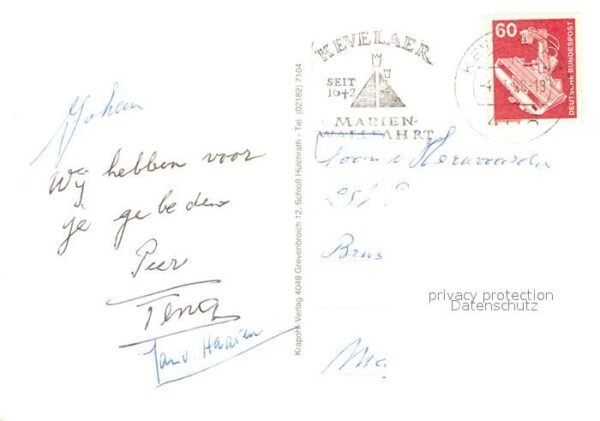 Johan
Wij hebben voor
je gebeden
Peer
Tena
Jan v Haaren
Krapohl-Verlag 4048 Grevenbroich 12, Schloß Hülchrath - Tel. (02182) 7104
KEVELAER
SEIT
1642
MARIEN-
WALLFAHRT
60
DEUTSCHE BUNDESPOST
Toon v
Brus
privacy protection
Datenschutz